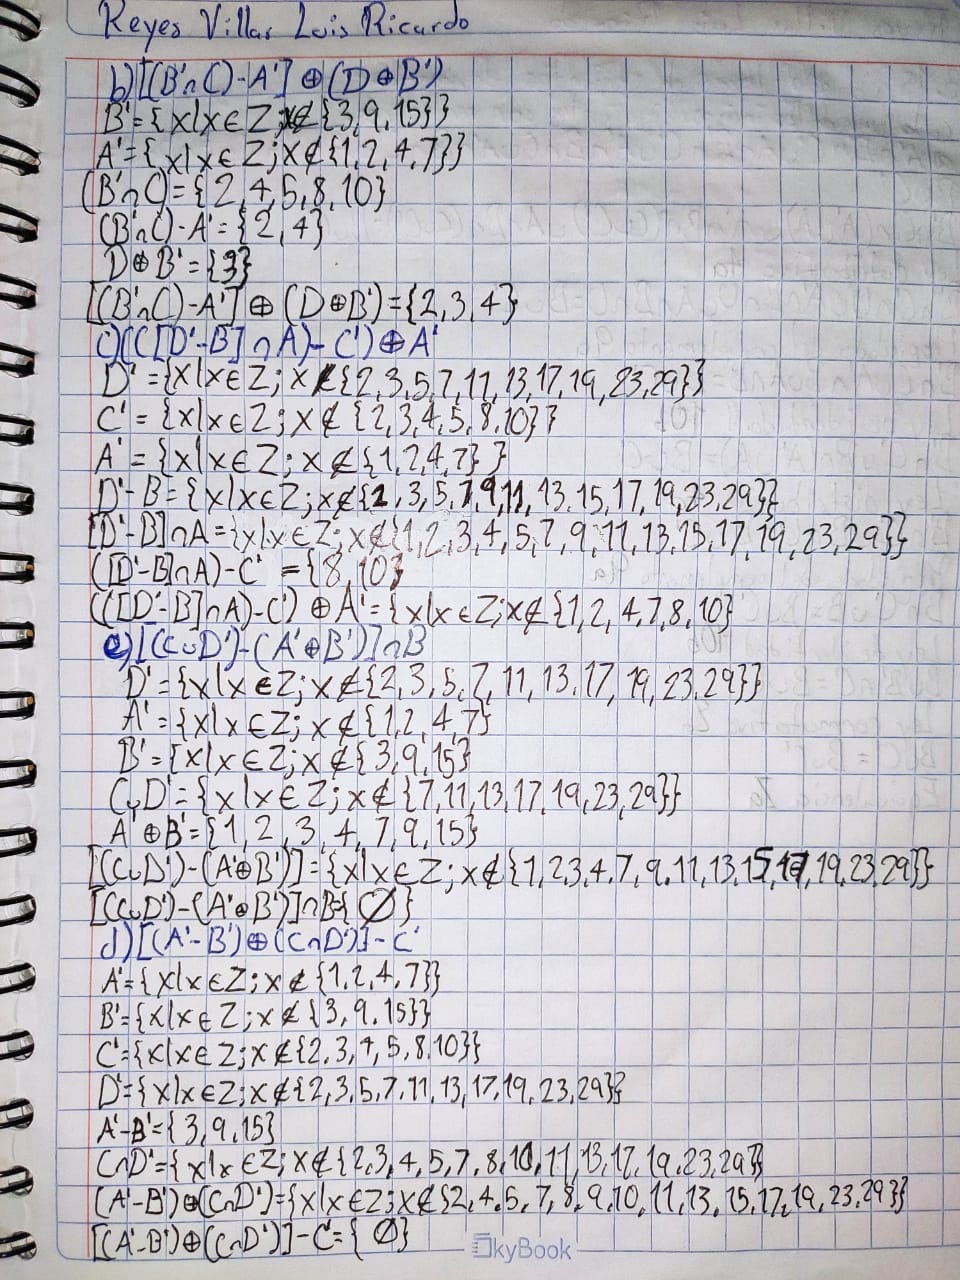 Reyes Villar Luis Ricardo
b)[(B'∩C)-A'] ⊕ (D ⊕ B')
B'={x|x∈Z;x∉{3,9,15}}
A'={x|x∈Z;x∉{1,2,4,7}}
(B'∩C)={2,4,5,8,10}
(B'∩C)-A'={2,4}
D⊕B'={3}
[(B'∩C)-A'] ⊕ (D⊕B')={2,3,4}
c)(([D'-B]∩A)-C')⊕A'
D'={x|x∈Z;x∉{2,3,5,7,11,13,17,19,23,29}}
C'={x|x∈Z;x∉{2,3,4,5,8,10}}
A'={x|x∈Z;x∉{1,2,4,7}}
D'-B={x|x∈Z;x∉{2,3,5,7,9,11,13,15,17,19,23,29}}
[D'-B]∩A={x|x∈Z;x∉{1,2,3,4,5,7,9,11,13,15,17,19,23,29}}
([D'-B]∩A)-C'={8,10}
(([D'-B]∩A)-C')⊕A'={x|x∈Z;x∉{1,2,4,7,8,10}
e)[(C∪D')-(A'⊕B')]∩B
D'={x|x∈Z;x∉{2,3,5,7,11,13,17,19,23,29}}
A'={x|x∈Z;x∉{1,2,4,7}
B'={x|x∈Z;x∉{3,9,15}
C∪D'={x|x∈Z;x∉{7,11,13,17,19,23,29}}
A'⊕B'={1,2,3,4,7,9,15}
[(C∪D')-(A'⊕B')]={x|x∈Z;x∉{1,2,3,4,7,9,11,13,15,17,19,23,29}}
[(C∪D')-(A'⊕B')]∩B={∅}
d)[(A'-B')⊕(C∩D')]-C'
A'={x|x∈Z;x∉{1,2,4,7}}
B'={x|x∈Z;x∉{3,9,15}}
C'={x|x∈Z;x∉{2,3,4,5,8,10}}
D'={x|x∈Z;x∉{2,3,5,7,11,13,17,19,23,29}}
A'-B'={3,9,15}
C∩D'={x|x∈Z;x∉{2,3,4,5,7,8,10,11,13,17,19,23,29}}
(A'-B')⊕(C∩D')={x|x∈Z;x∉{2,4,5,7,8,9,10,11,13,15,17,19,23,29}}
[(A'-B')⊕(C∩D')]-C'={∅}
SkyBook